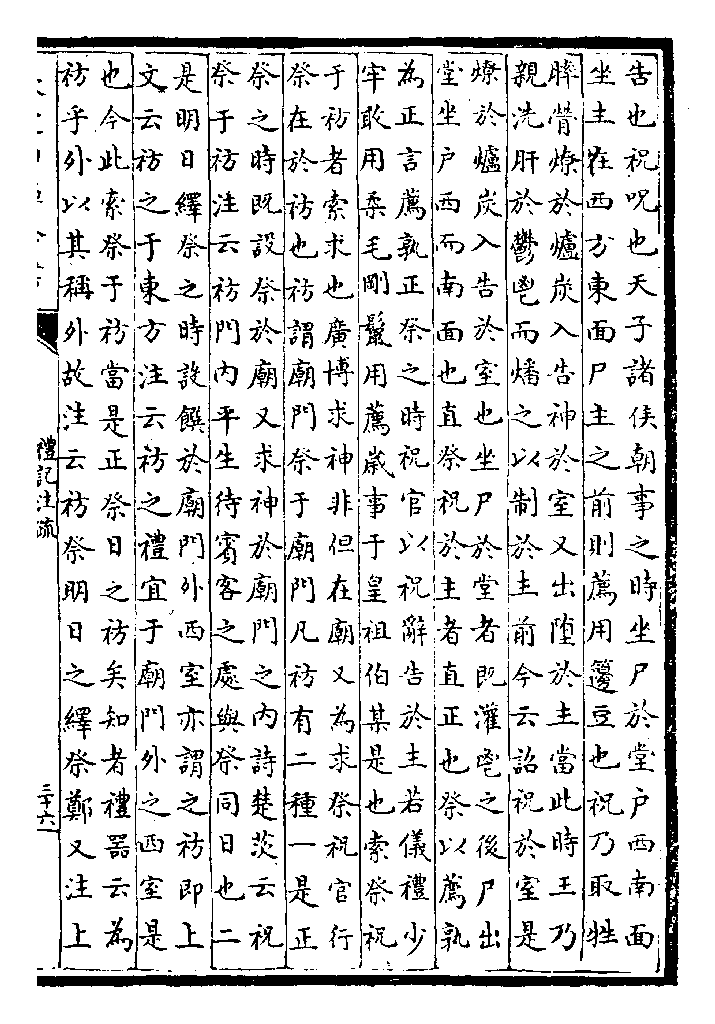 告也祝呪也天子諸侯朝事之時坐尸於堂戶西南面
坐主在西方東面尸主之前則薦用籩豆也祝乃取牲
膟膋燎於爐炭入告神於室又出墮於主當此時王乃
親洗肝於鬱鬯而燔之以制於主前今云詔祝於室是
燎於爐炭入告於室也坐尸於堂者既灌鬯之後尸出
堂坐戶西而南面也直祭祝於主者直正也祭以薦孰
為正言薦孰正祭之時祝官以祝辭告於主若儀禮少
牢敢用柔毛剛鬛用薦歲事于皇祖伯某是也索祭祝
于祊者索求也廣博求神非但在廟又為求祭祝官行
祭在於祊也祊謂廟門祭于廟門凡祊有二種一是正
祭之時既設祭於廟又求神於廟門之內詩楚茨云祝
祭于祊注云祊門內平生待賓客之處與祭同日也二
是明日繹祭之時設饌於廟門外西室亦謂之祊即上
文云祊之于東方注云祊之禮宜于廟門外之西室是
也今此索祭于祊當是正祭日之祊矣知者禮器云為
祊乎外以其稱外故注云祊祭明日之繹祭鄭又注上
禮記注疏
三十六